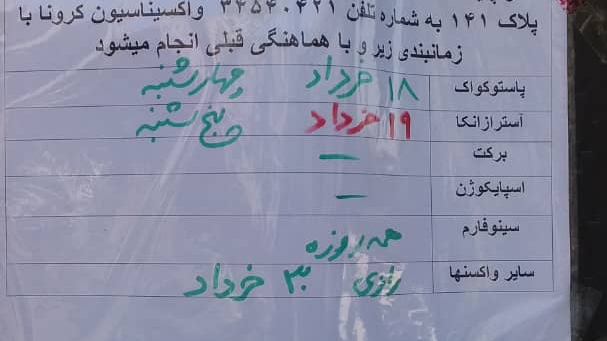 پلاک ۱۴۱ به شماره تلفن ۳۴۵۴۰۴۲۱ واکسیناسیون کرونا با
زمانبندی زیر و با هماهنگی قبلی انجام میشود
پاستوکواک ۱۸ خرداد چهارشنبه
آسترازانکا ۱۹ خرداد پنج شنبه
برکت —
اسپایکوژن —
سینوفارم همه روزه
سایر واکسنها رازی ۳۰ خرداد